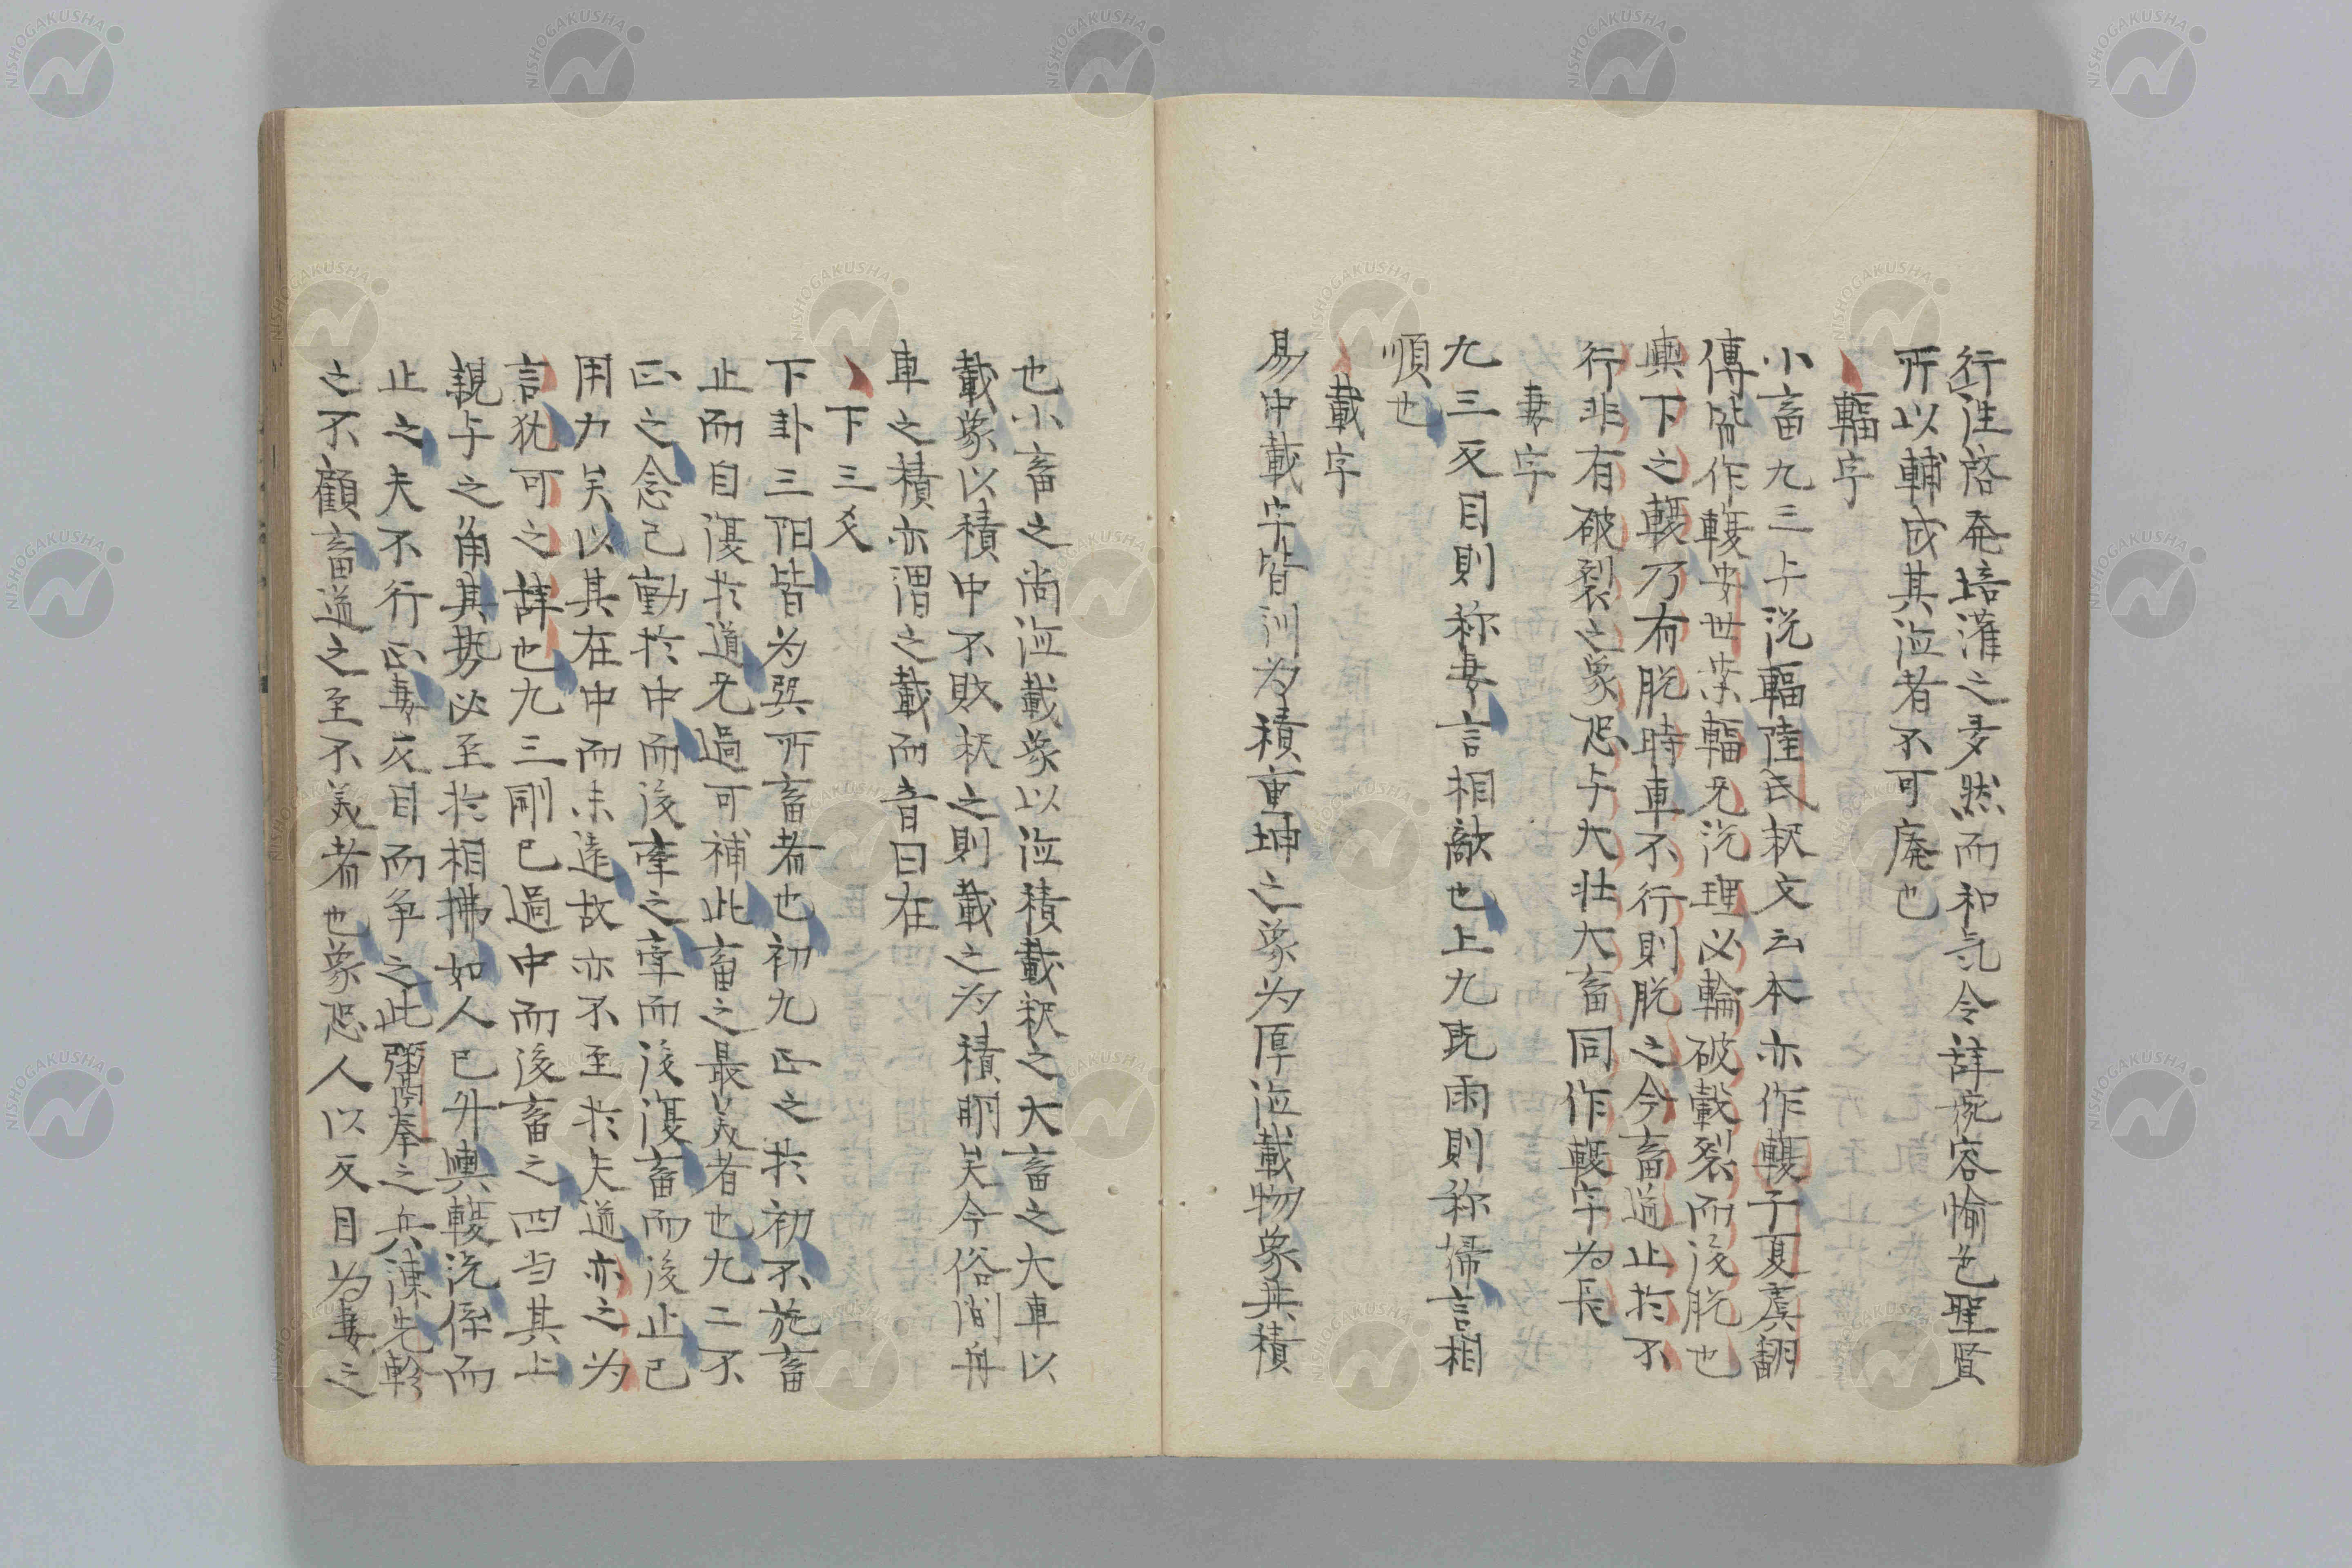 行性啓発培灌之多然而和気令辞婉容愉色聖賢
所以輔成其泣者不可廃也
輻字
小畜九三与説輻陸氏釈文云本亦作輹子夏虞翻
傳皆作輹安世案輻无説理必輪破轂裂而後脱也
輿下之輹乃有脱時車不行則脱之今畜道止於不
行非有破裂之象恐与大壮大畜同作輹字為長
妻字
九三反目則称妻言相敵也上九既雨則称婦言相
順也
載字
易中載字皆訓為積重坤之象為厚泣載物象兼積
也小畜之尚泣載象以泣積載釈之大畜之大車以
載象以積中不敗釈之則載之為積明矣今俗間舟
車之積亦謂之載而音曰在
下三爻
下卦三陽皆為巽所畜者也初九正之於初不施畜
止而自復於道无過可補此畜之最美者也九二不
正之念已動於中而後牽之牽而後復畜而後止已
用力矣以其在中而未遠故亦不至於失道亦之為
言犹可之辞也九三剛已過中而後畜之四当其上
親与之角其勢必至於相拂如人已升輿輹説係而
止之夫不行正妻反目而争之此彊閉奉之兵諫先軫
之不顧畜道之至不美者也象恐人以反目為妻之
NISHOGAKUSHA